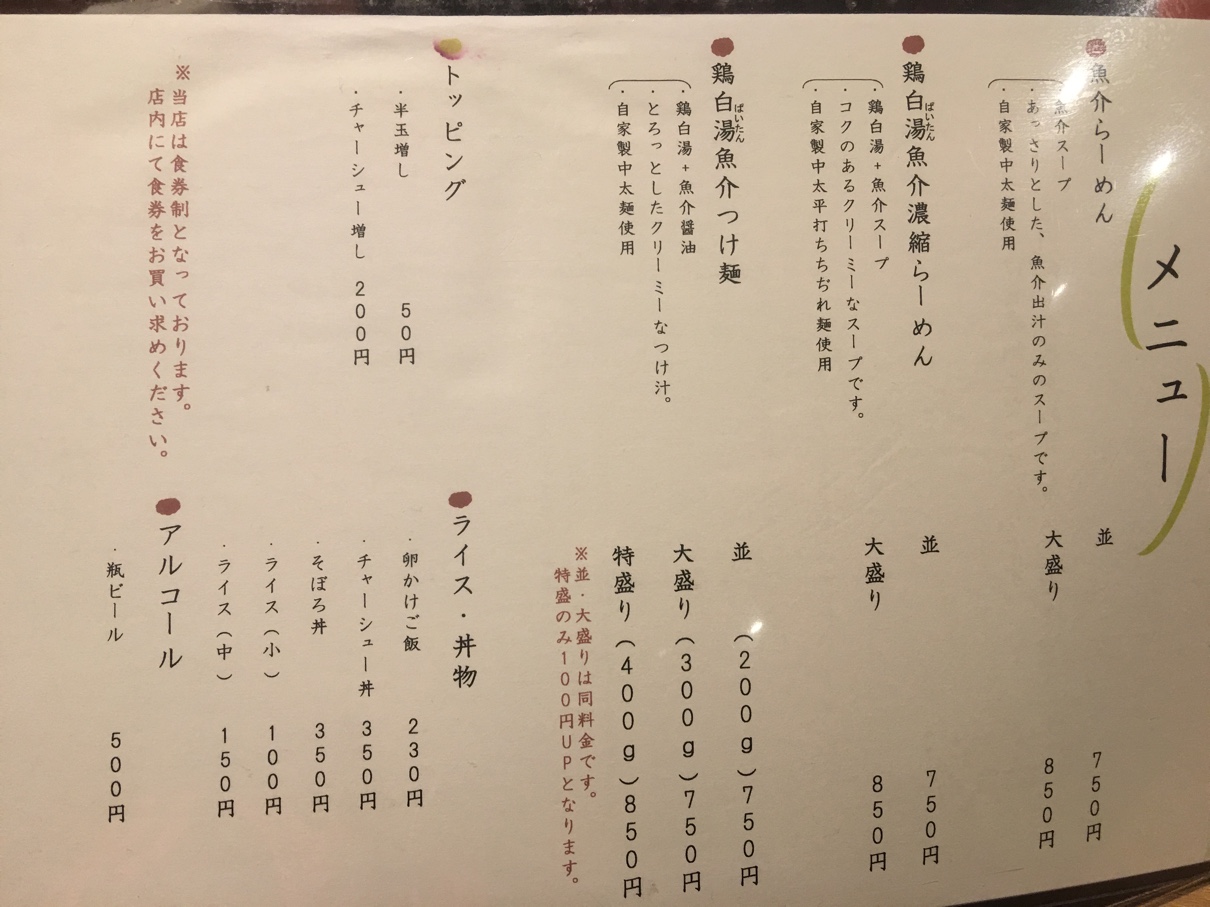 メニュー
魚介らーめん
・魚介スープ
・あっさりとした、魚介出汁のみのスープです。
・自家製中太麺使用
並 750円
大盛り 850円
鶏白湯魚介濃縮らーめん
ぱいたん
・鶏白湯+魚介スープ
・コクのあるクリーミーなスープです。
・自家製中太平打ちちぢれ麺使用
並 750円
大盛り 850円
鶏白湯魚介つけ麺
ぱいたん
・鶏白湯+魚介醤油
・とろっとしたクリーミーなつけ汁。
・自家製中太麺使用
並 (200g)750円
大盛り(300g)750円
特盛り(400g)850円
※並・大盛りは同料金です。
特盛のみ100円UPとなります。
トッピング
・半玉増し 50円
・チャーシュー増し 200円
ライス・丼物
・卵かけご飯 230円
・チャーシュー丼 350円
・そぼろ丼 350円
・ライス(小) 100円
・ライス(中) 150円
※当店は食券制となっております。
店内にて食券をお買い求めください。
アルコール
・瓶ビール 500円